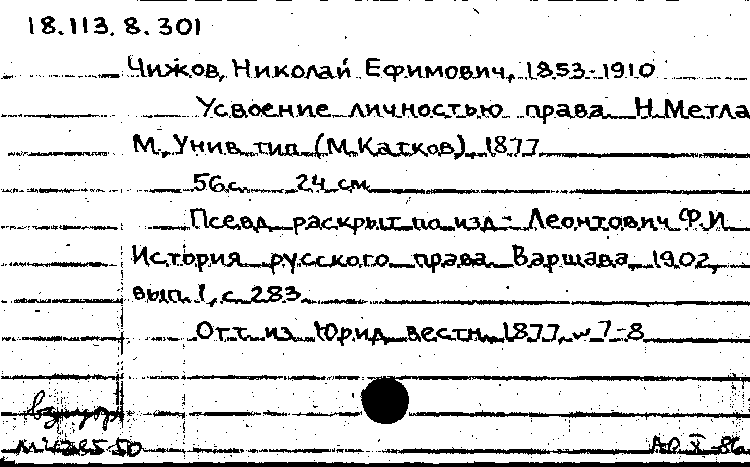 18.113.8.301
Чижов, Николай Ефимович, 1853-1910
Усвоение личностью права Н.Метла
М., Унив. тип. (М.Катков), 1877
56с. 24 см
Псевд. раскрыт по изд.: Леонтович Ф.И.
История русского права. Варшава, 1902,
вып. 1, с. 283.
Отт. из Юрид. вестн. 1877, № 7-8
АО X-86